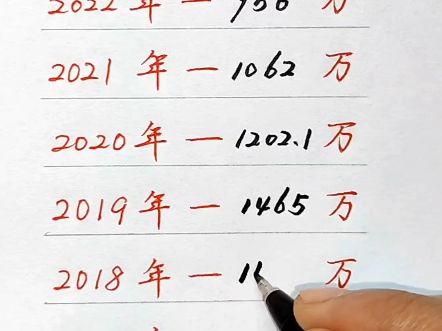 2022年—956万
2021年—1062万
2020年—1202.1万
2019年—1465万
2018年—1 万